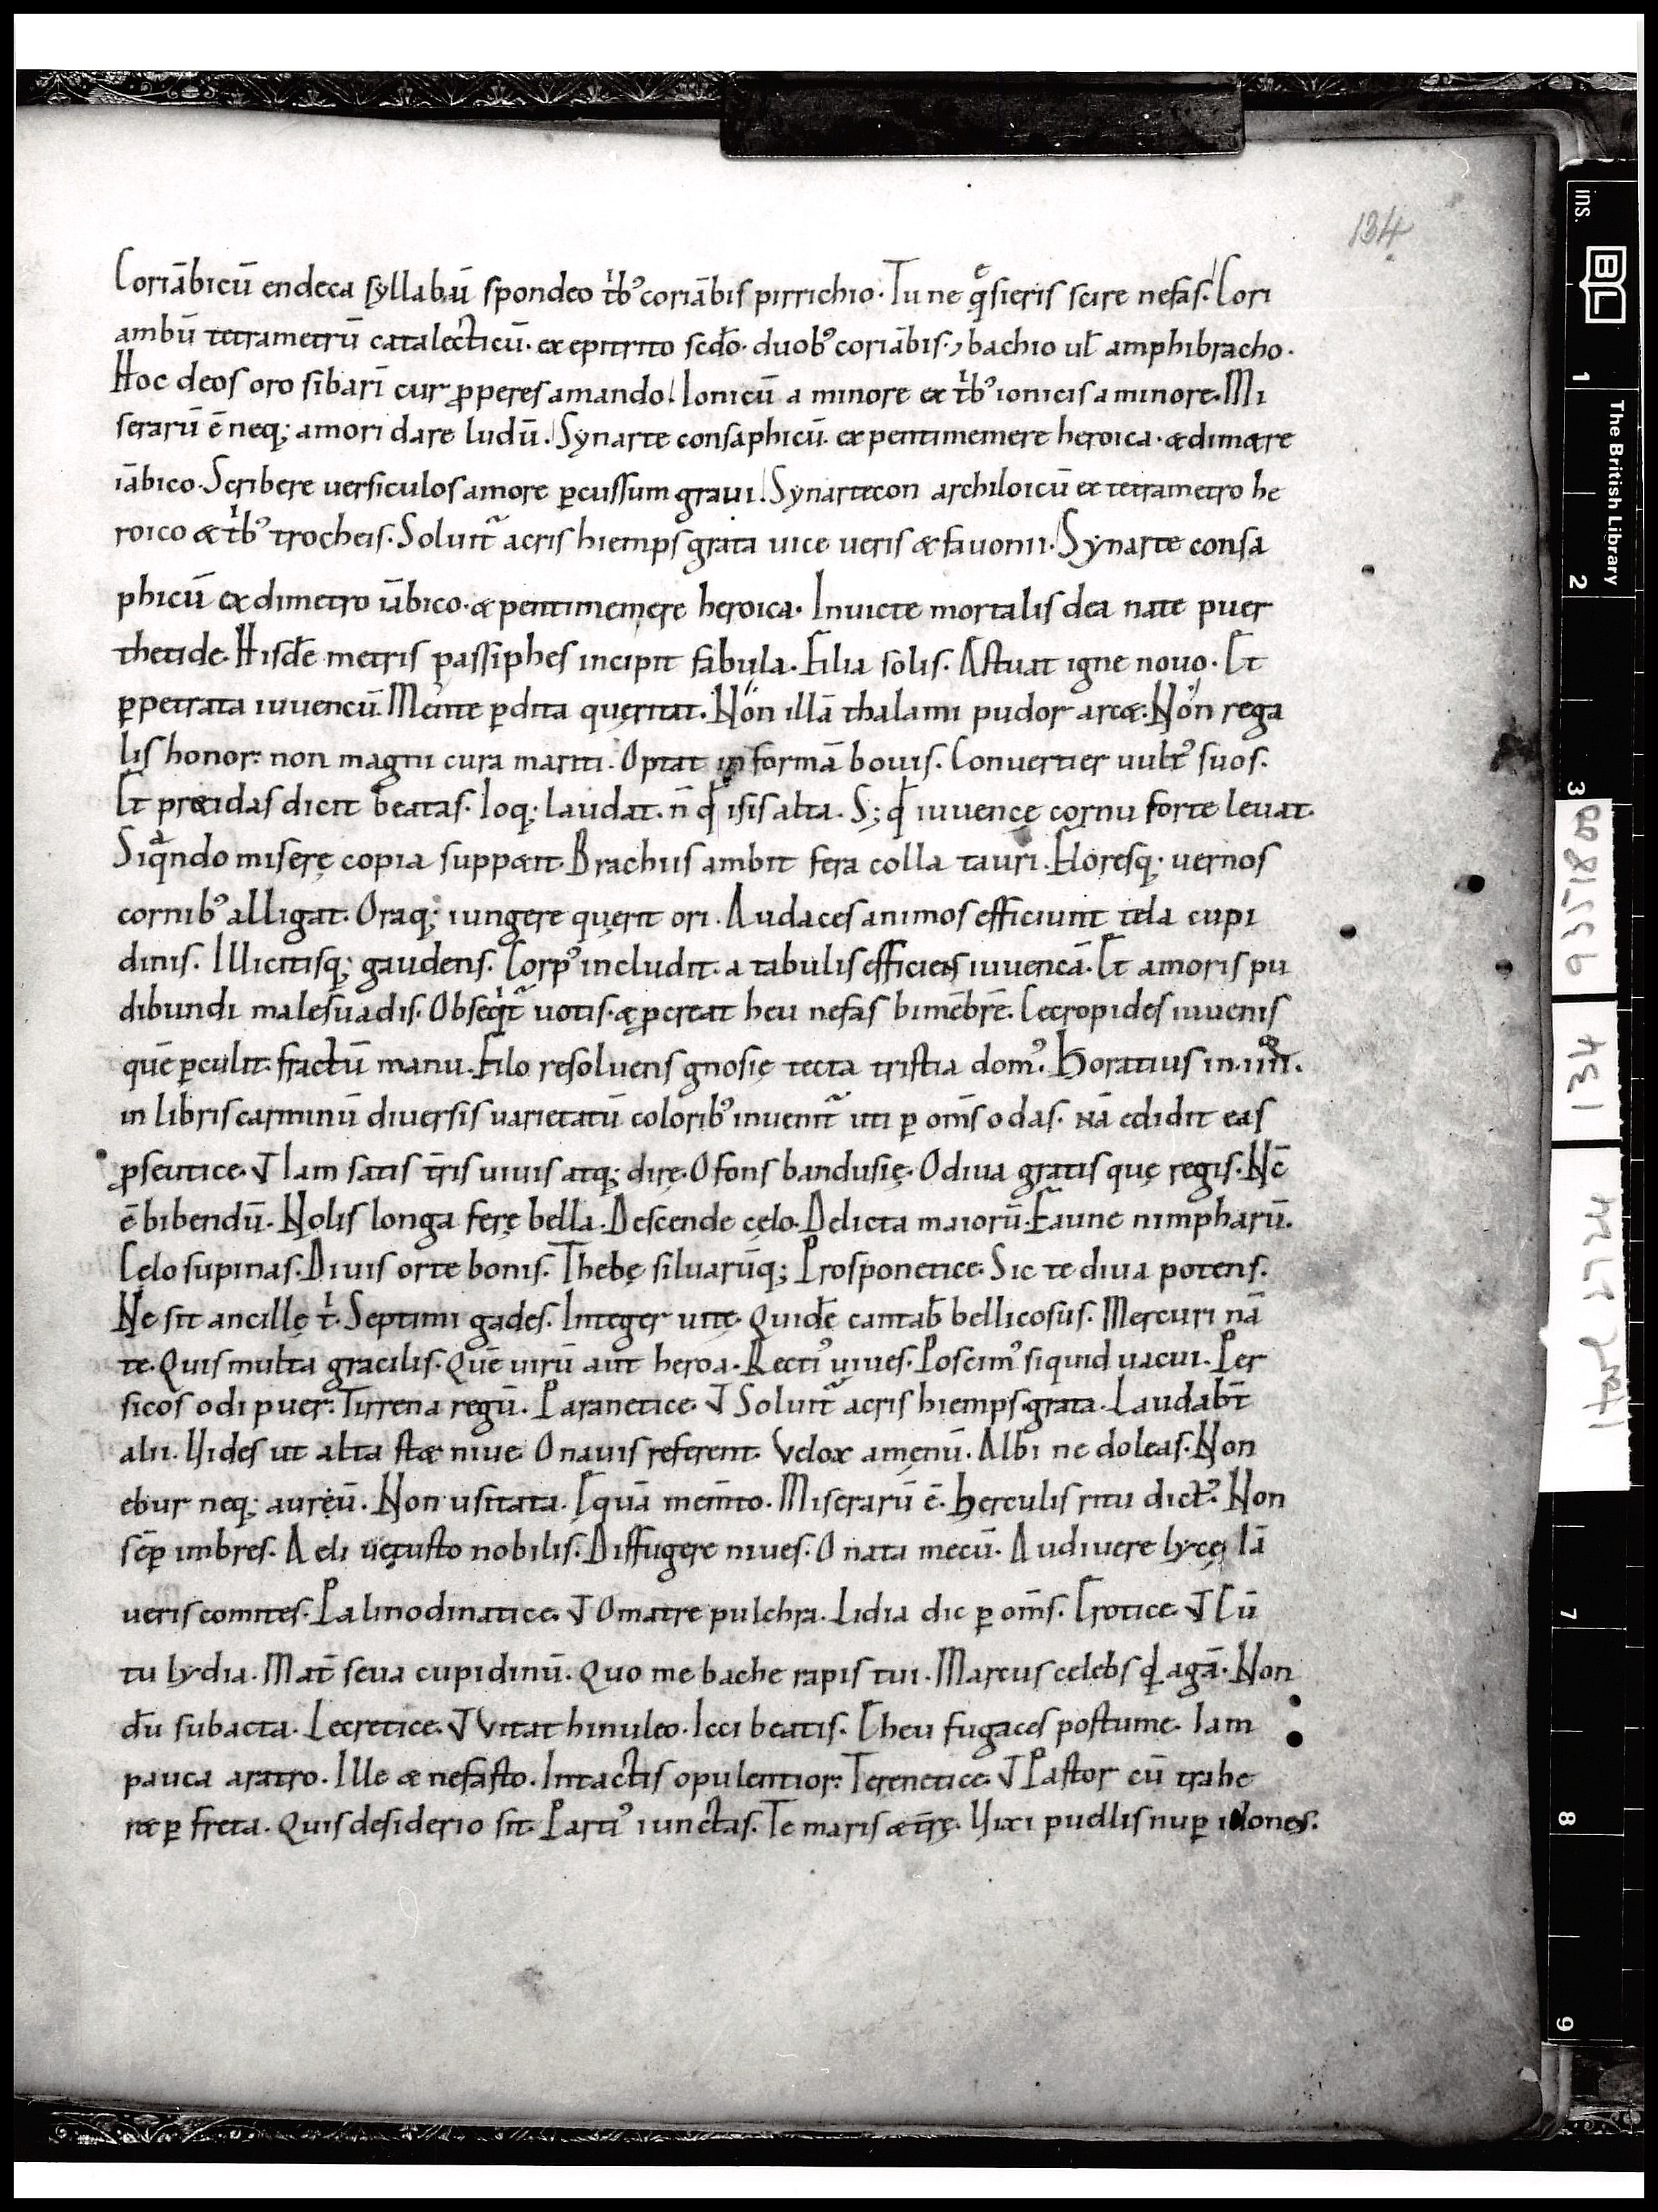 134
Coriābicū endeca syllabū spondeo tⁱbꝰ coriābis pirrichio. Tu ne qͤsieris scire nefas. Cori
ambū tetrametrū catalecticū. ex epitrito scdo. duobꝰ coriābis. ⁊ bachio ul̄ amphibracho.
Hoc deos oro sibarī cur ꝓperes amando. Ionicū a minore ex tⁱbꝰ ionicis a minore. Mi
serarū ē neq; amori dare ludū. Synarte consaphicū ex pentimemere heroica. & dimetre
iābico. Scribere uersiculos amore ꝑcussum graui. Synartecon archiloicū ex tetrametro he
roico & tⁱbꝰ trocheis. Soluit̄ acris hiemps grata uice ueris & fauonii. Synarte consa
phicū ex dimetro iābico. & pentimemere heroica. Inuicte mortalis dea nate puer
thetide. Hisdē metris passiphes incipit fabula. Filia solis. Aestuat igne nouo. Et
ꝑpetrata iuuencū. Mente ꝑdita queritat. Non illā thalami pudor arcet. Non rega
lis honor: non magni cura mariti. Optat in formā bouis. Conuertier uultꝰ suos.
Et prœtidas dicit beatas. Ioq; laudat. n̄ qđ isis alta. S; qđ iuuencę cornu forte leuat.
Siqᵃndo miserę copia suppetit. Brachiis ambit fera colla tauri. Floresq; uernos
cornibꝰ alligat. Oraq; iungere quęrit ori. Audaces animos efficiunt tela cupi
dinis. Illicitisq; gaudens. Corpꝰ includit. a tabulis efficiens iuuencā. Et amoris pu
dibundi malesuadis. Obseqⁱt̄ uotis. & ꝓcreat heu nefas bimēbrē. Cecropides iuuenis
quē ꝑculit fractū manu. Filo resoluens gnosię tecta tristia domꝰ. Horatius in .iiii.
in libris carminū diuersis uarietatū coloribꝰ inuenit̄ uti ꝑ om̄s odas. nā edidit eas
ꝓseutice. J Iam satis tr̄is niuis atq; dirę. O fons bandusię. O diua gratis quę regis. Nc̄
ē bibendū. Nolis longa ferę bella. Descende cęlo. Delicta maiorū. Faune nimpharū.
Celo supinas. Diuis orte bonis. Thebę siluarūq; Prosponetice. Sic te diua potens.
Ne sit ancillę tⁱ. Septimi gades. Integer uitę. Quidē cantab̄ bellicosus. Mercuri nā
te. Quis multa gracilis. Quē uirū aut heroa. Rectiꝰ uiues. Poscimꝰ siquid uacui. Per
sicos odi puer. Tirrena regū. Paranetice. J Soluit̄ acris hiemps grata. Laudabt̄
alii. Uides ut alta stet niue. O nauis referent. Velox amęnū. Albi ne doleas. Non
ebur neq; aureū. Non usitata. Ęquā mem̄to. Miserarū ē. Herculis ritu dictꝰ. Non
sēꝑ imbres. Aeli uetusto nobilis. Diffugere niues. O nata mecū. Audiuere lyce. Iā
ueris comites. Palinodinatice. J O matre pulchra. Lidia dic ꝑ om̄s. Erotice. J Cū
tu lydia. Mat̄ seua cupidinū. Quo me bache rapis tui. Marcus celebs qđ agā. Non
dū subacta. Lecretice. J Vitat hinuleo. Icci beatis. Eheu fugaces postume. Iam
pauca aratro. Ille & nefasto. Intactis opulentior. Terenetice. J Pastor cū trahe
ret ꝑ freta. Quis desiderio sit. Partiꝰ iunctas. Te maris & trę. Uixi puellis nuꝑ idones.
ins.
BL
The British Library
1
2
3
7
8
9
Harl
2724
134